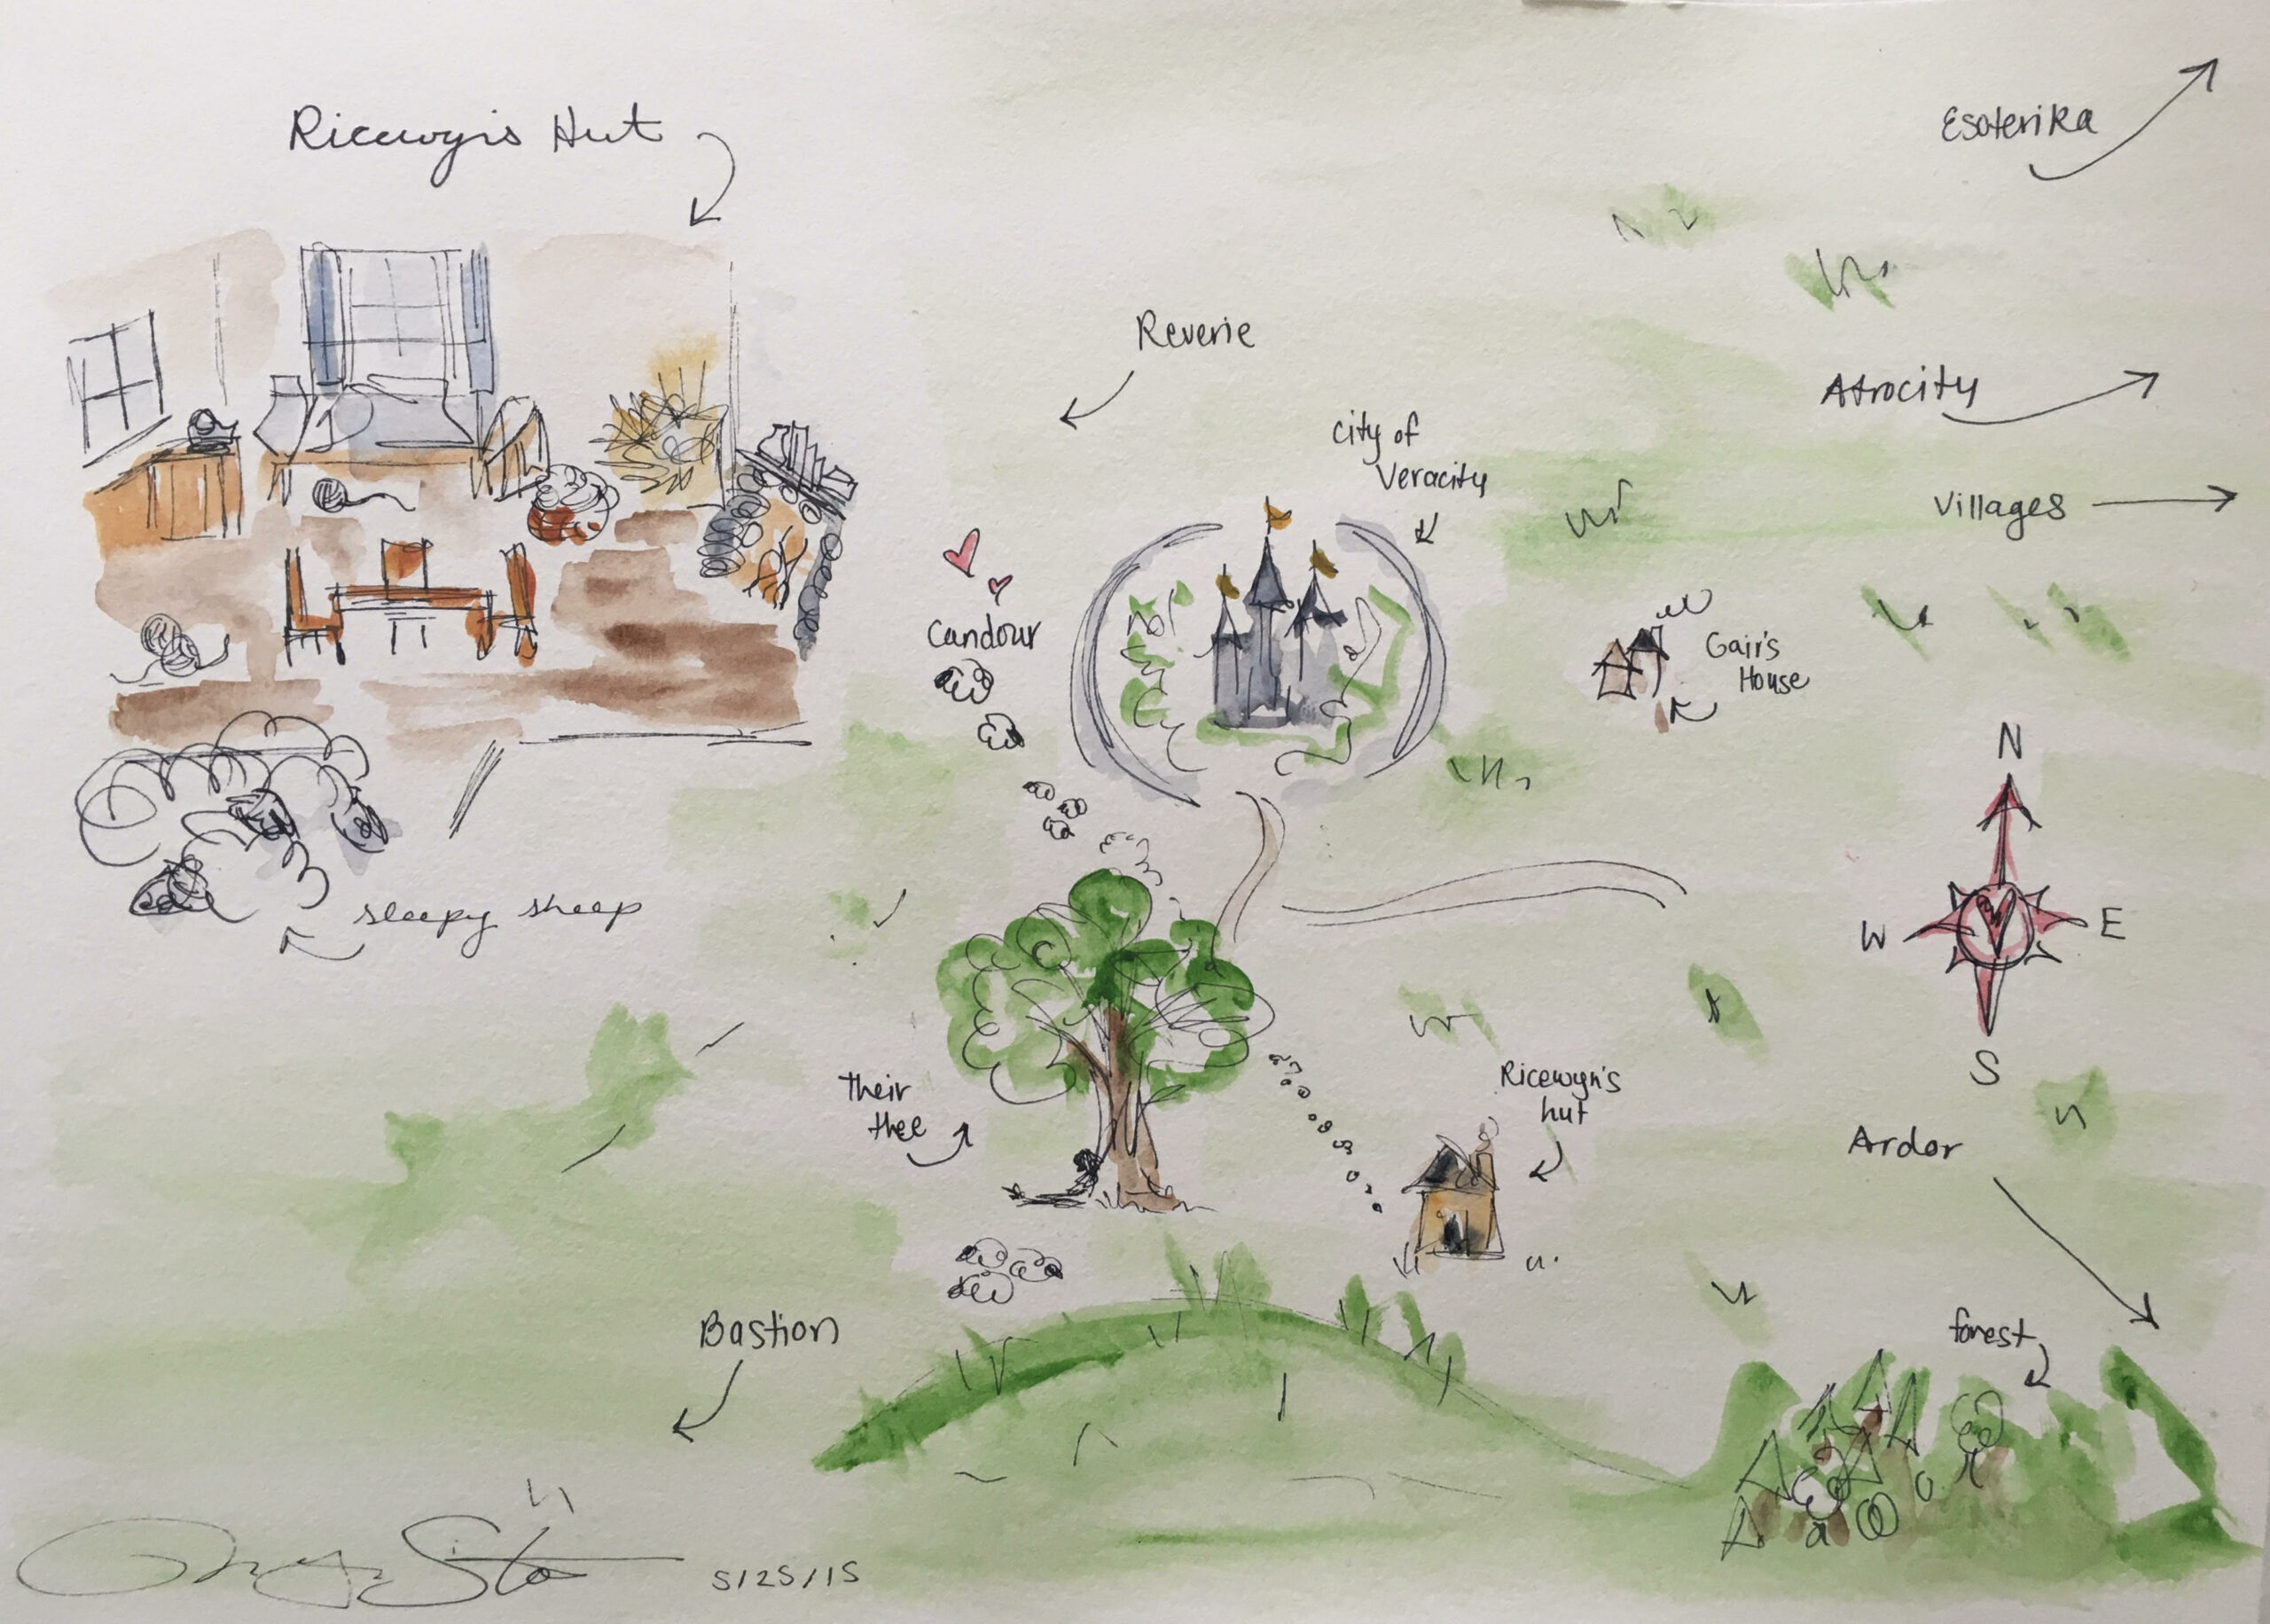 Ricewyn's Hut
Esoterika
Reverie
Atrocity
City of
Veracity
Villages
Candour
Gair's
House
N
W
E
S
sleepy sheep
Their
thee
Ricewyn's
hut
Ardor
Bastion
forest
5/25/15